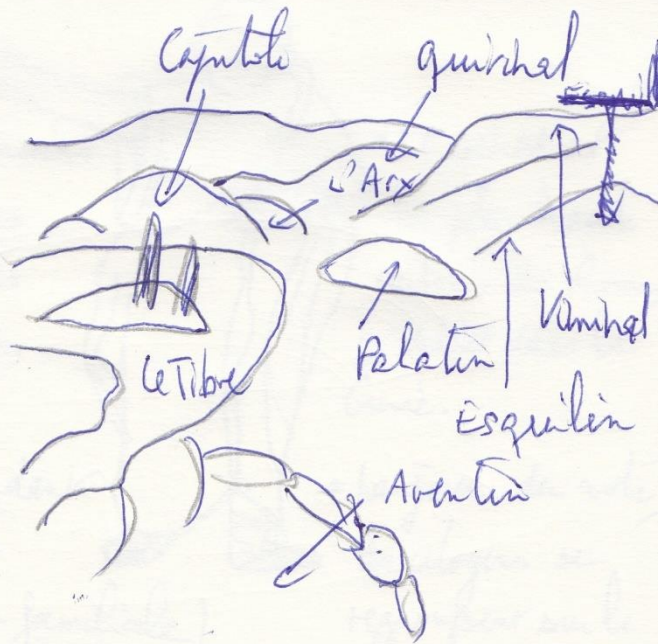 Capitole
Quirinal
Esquil
L'Arx
Le Tibre
Palatin
Viminal
Esquilin
Aventin